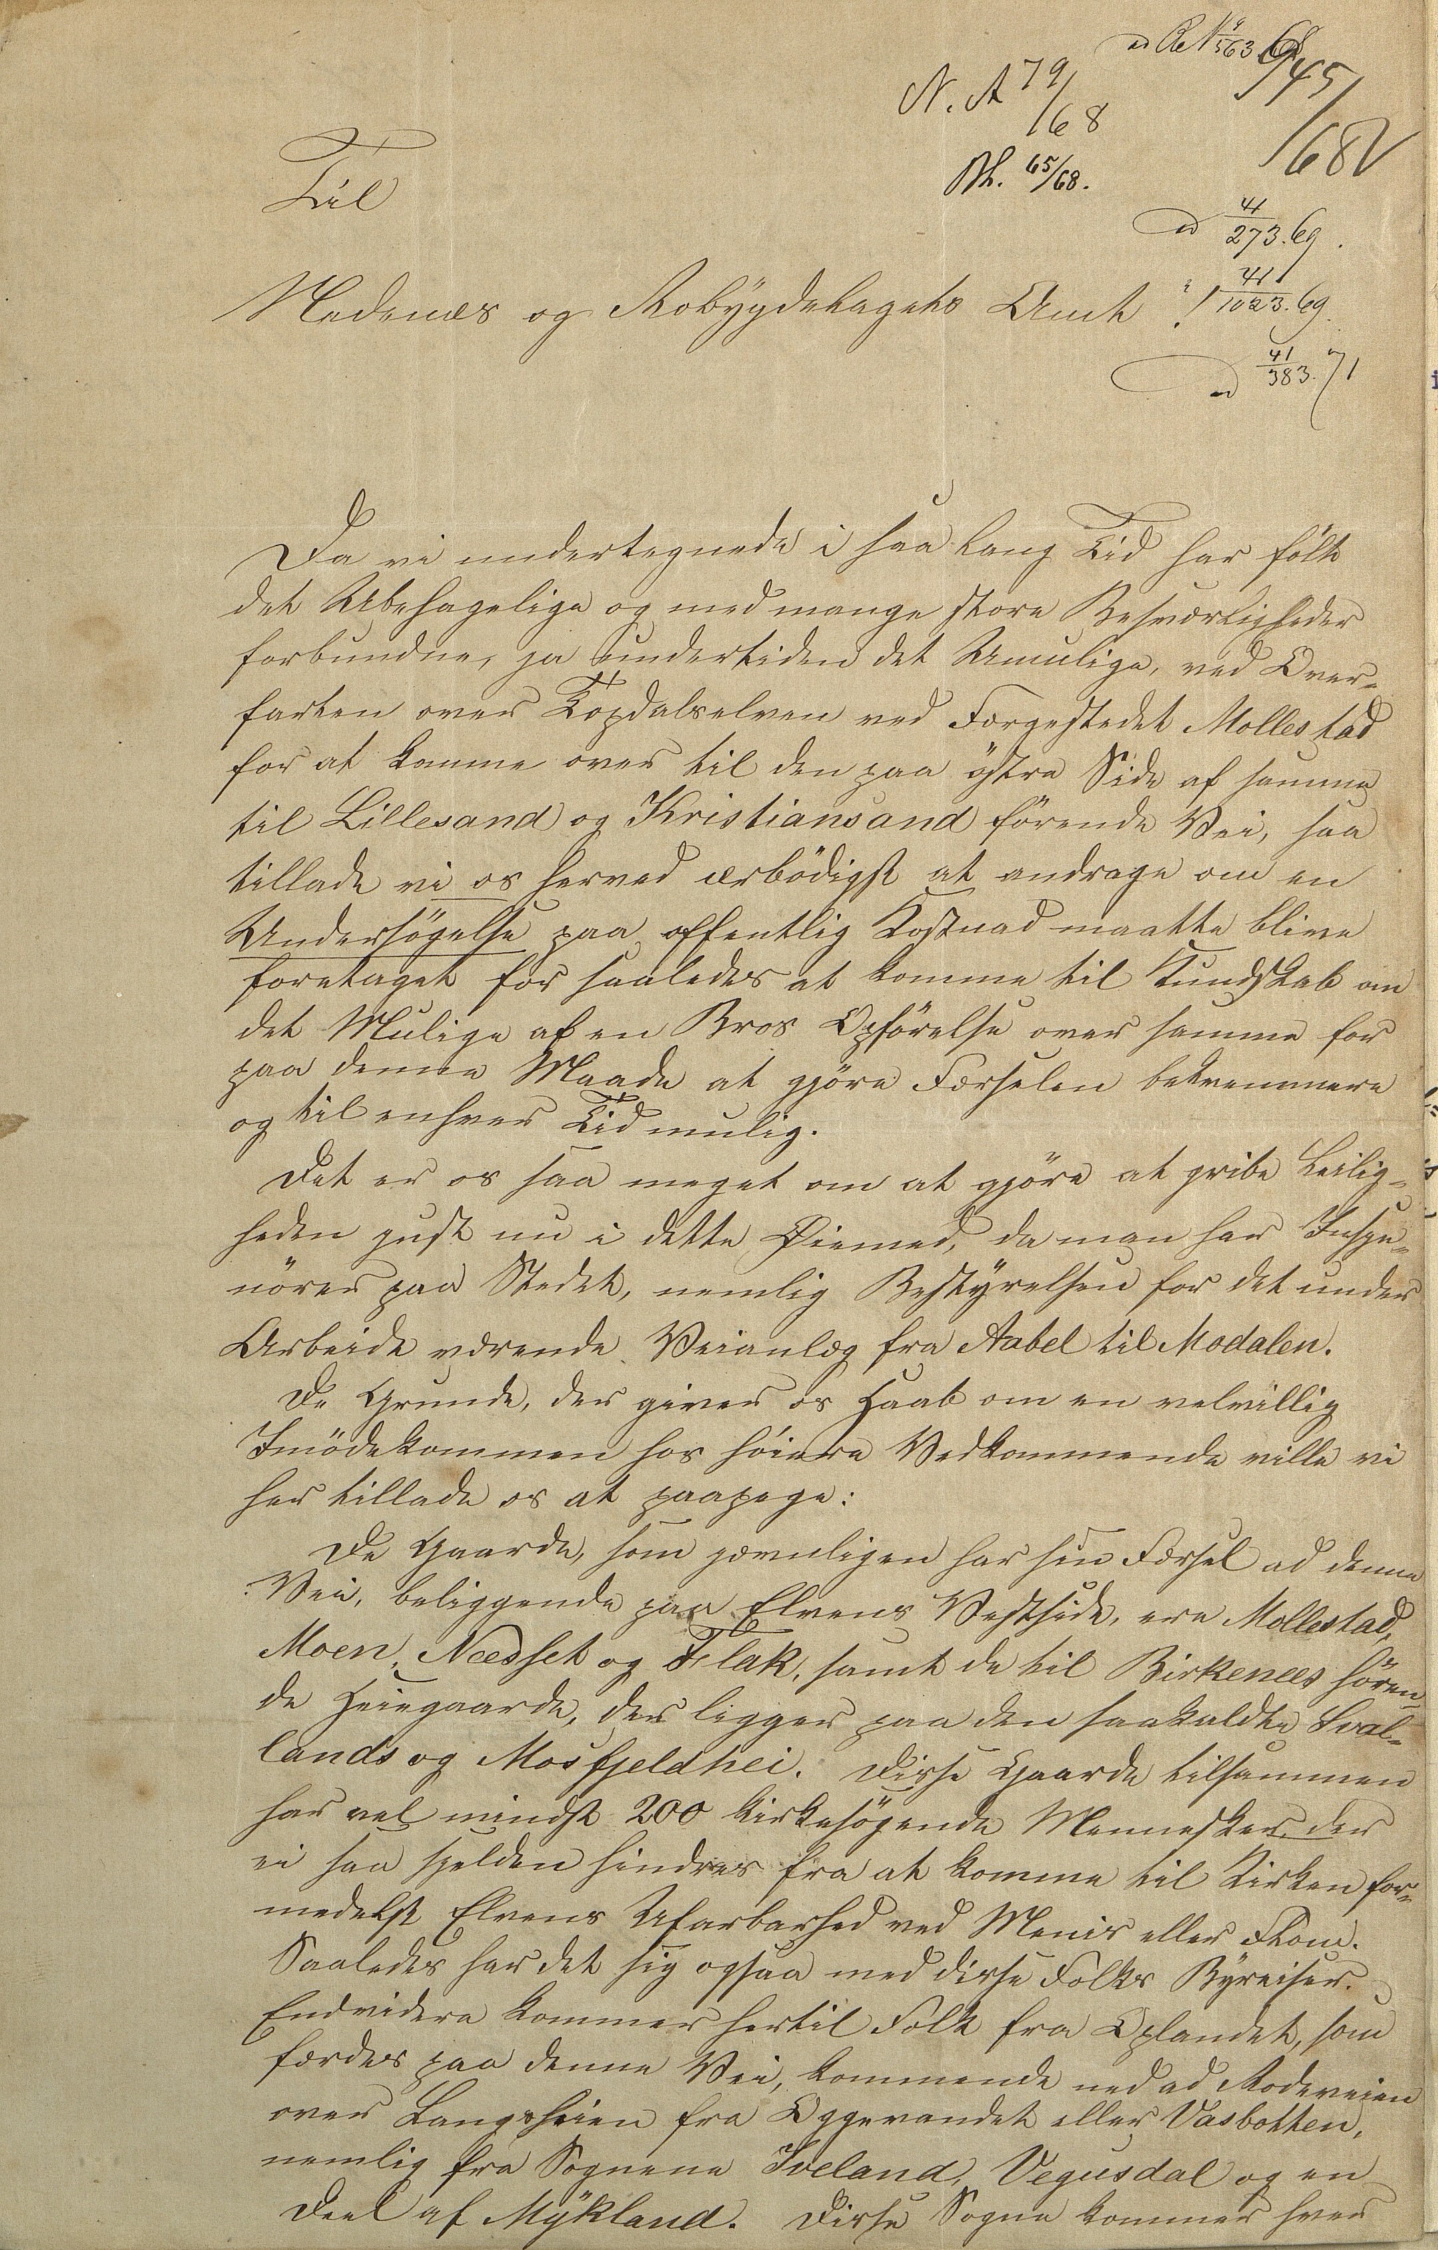 ad Re No 4/563 68
N. A 79/68
945/68
Bh. 65/68.
Til
ad 41/273.69.
Nedenæs og Robygdelagets Amt!
41/1023.69.
ad 41/383.71
Da vi undertegnede i saa lang Tid har følt
det Ubehagelige og med mange store Besværligheder
forbundne, ja undertiden det Umulige, ved Over-
farten over Topdalselven ved Færgestedet Mollestad
for at komme over til den paa østre Side af samme
til Lillesand og Kristiansand førende Vei, saa
tillade vi os herved ærbødigst at andrage om en
Undersøgelse paa offentlig Kostnad maatte blive
foretaget for saaledes at komme til Kundskab om
det Mulige af en Bros Opførelse over samme for
paa denne Maade at gjøre Færselen bekvemmere
og til enhver Tid mulig.
Det er os saa meget om at gjøre at gribe Leilig-
heden just nu i dette Øiemed, da man har Inge-
niører paa Stedet, nemlig Bestyrelsen for det under
Arbeide værende Veianlæg fra Aabel til Modalen.
De Grunde, der giver os Haab om en velvillig
Imødekommen hos høiere Vedkommende ville vi
her tillade os at paapege:
De Gaarde, som jævnligen har sin Færsel ad denne
Vei, beliggende paa Elvens Vestside, ere Mollestad,
Moen, Nædset og Flak, samt de til Birkenæs høren-
de Heiegaarde, der ligger paa den saakaldte Sval-
lands og Mosfjeldhei. Disse Gaarde tilsammen
har vel mindst 200 kirkesøgende Mennesker, der
ei saa sjelden hindres fra at komme til Kirken for-
medelst Elvens Ufarbarhed ved Menis eller Flom.
Saaledes har det sig ogsaa med disse Folks Byreiser.
Endvidere kommer hertil Folk fra Oplandet, som
færdes paa denne Vei, kommende ned ad Rodeveien
over Langsheien fra Oggevandet eller Vasbotten,
nemlig fra Sognene Iveland, Vegusdal og en
Deel af Mykland. Disse Sogne kommer hver